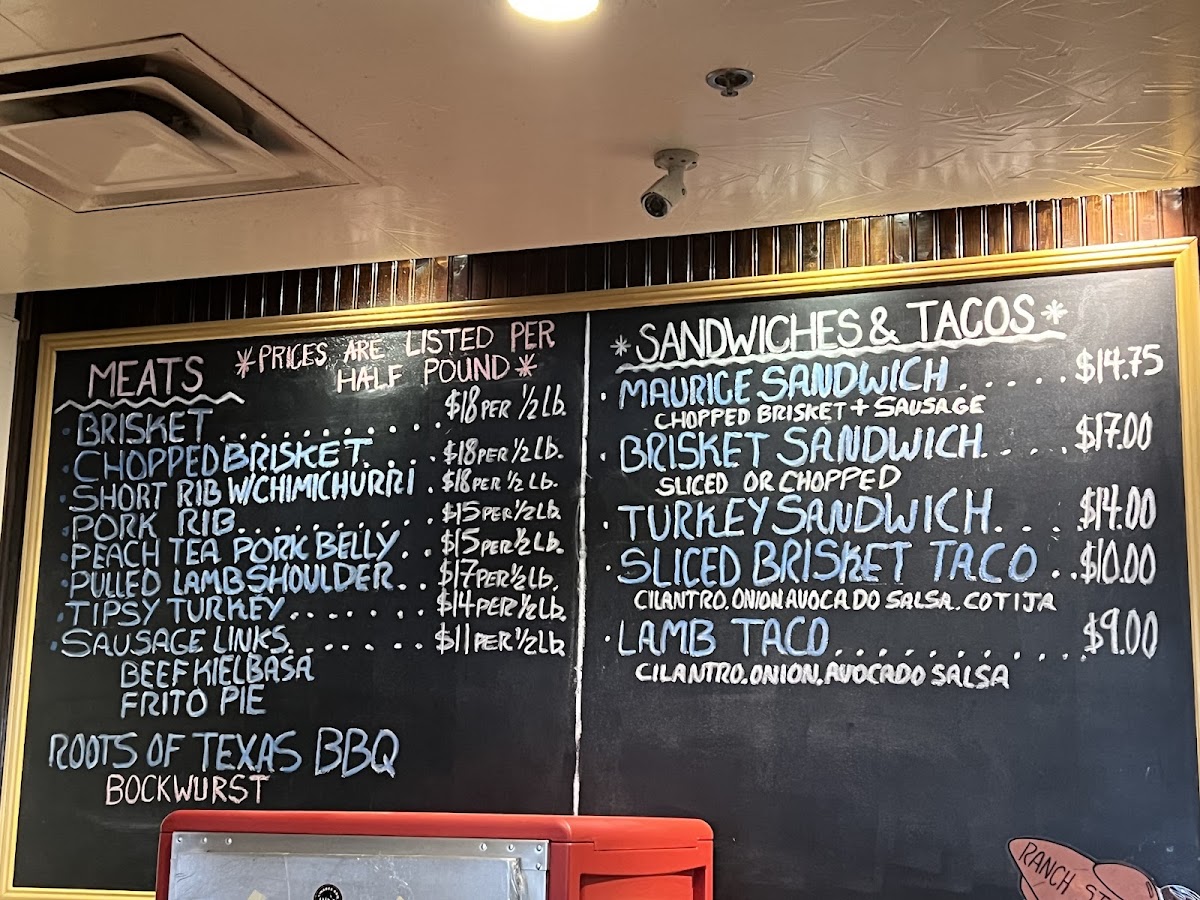 MEATS
*PRICES ARE LISTED PER
HALF POUND*
• BRISKET............ $18 PER 1/2 Lb.
• CHOPPED BRISKET.... $18 PER 1/2 Lb.
• SHORT RIB W/CHIMICHURRI . $18 PER 1/2 Lb.
• PORK RIB.......... $15 PER 1/2 Lb.
• PEACH TEA PORK BELLY.. $15 PER 1/2 Lb.
• PULLED LAMB SHOULDER.. $17 PER 1/2 Lb.
• TIPSY TURKEY....... $14 PER 1/2 Lb.
• SAUSAGE LINKS....... $11 PER 1/2 Lb
BEEF KIELBASA
FRITO PIE
ROOTS OF TEXAS BBQ
BOCKWURST
*SANDWICHES & TACOS*
• MAURICE SANDWICH...... $14.75
CHOPPED BRISKET + SAUSAGE
• BRISKET SANDWICH.... $17.00
SLICED OR CHOPPED
• TURKEY SANDWICH.... $14.00
• SLICED BRISKET TACO .. $10.00
CILANTRO. ONION. AVOCADO SALSA. COTIJA
• LAMB TACO........... $9.00
CILANTRO. ONION. AVOCADO SALSA
RANCH